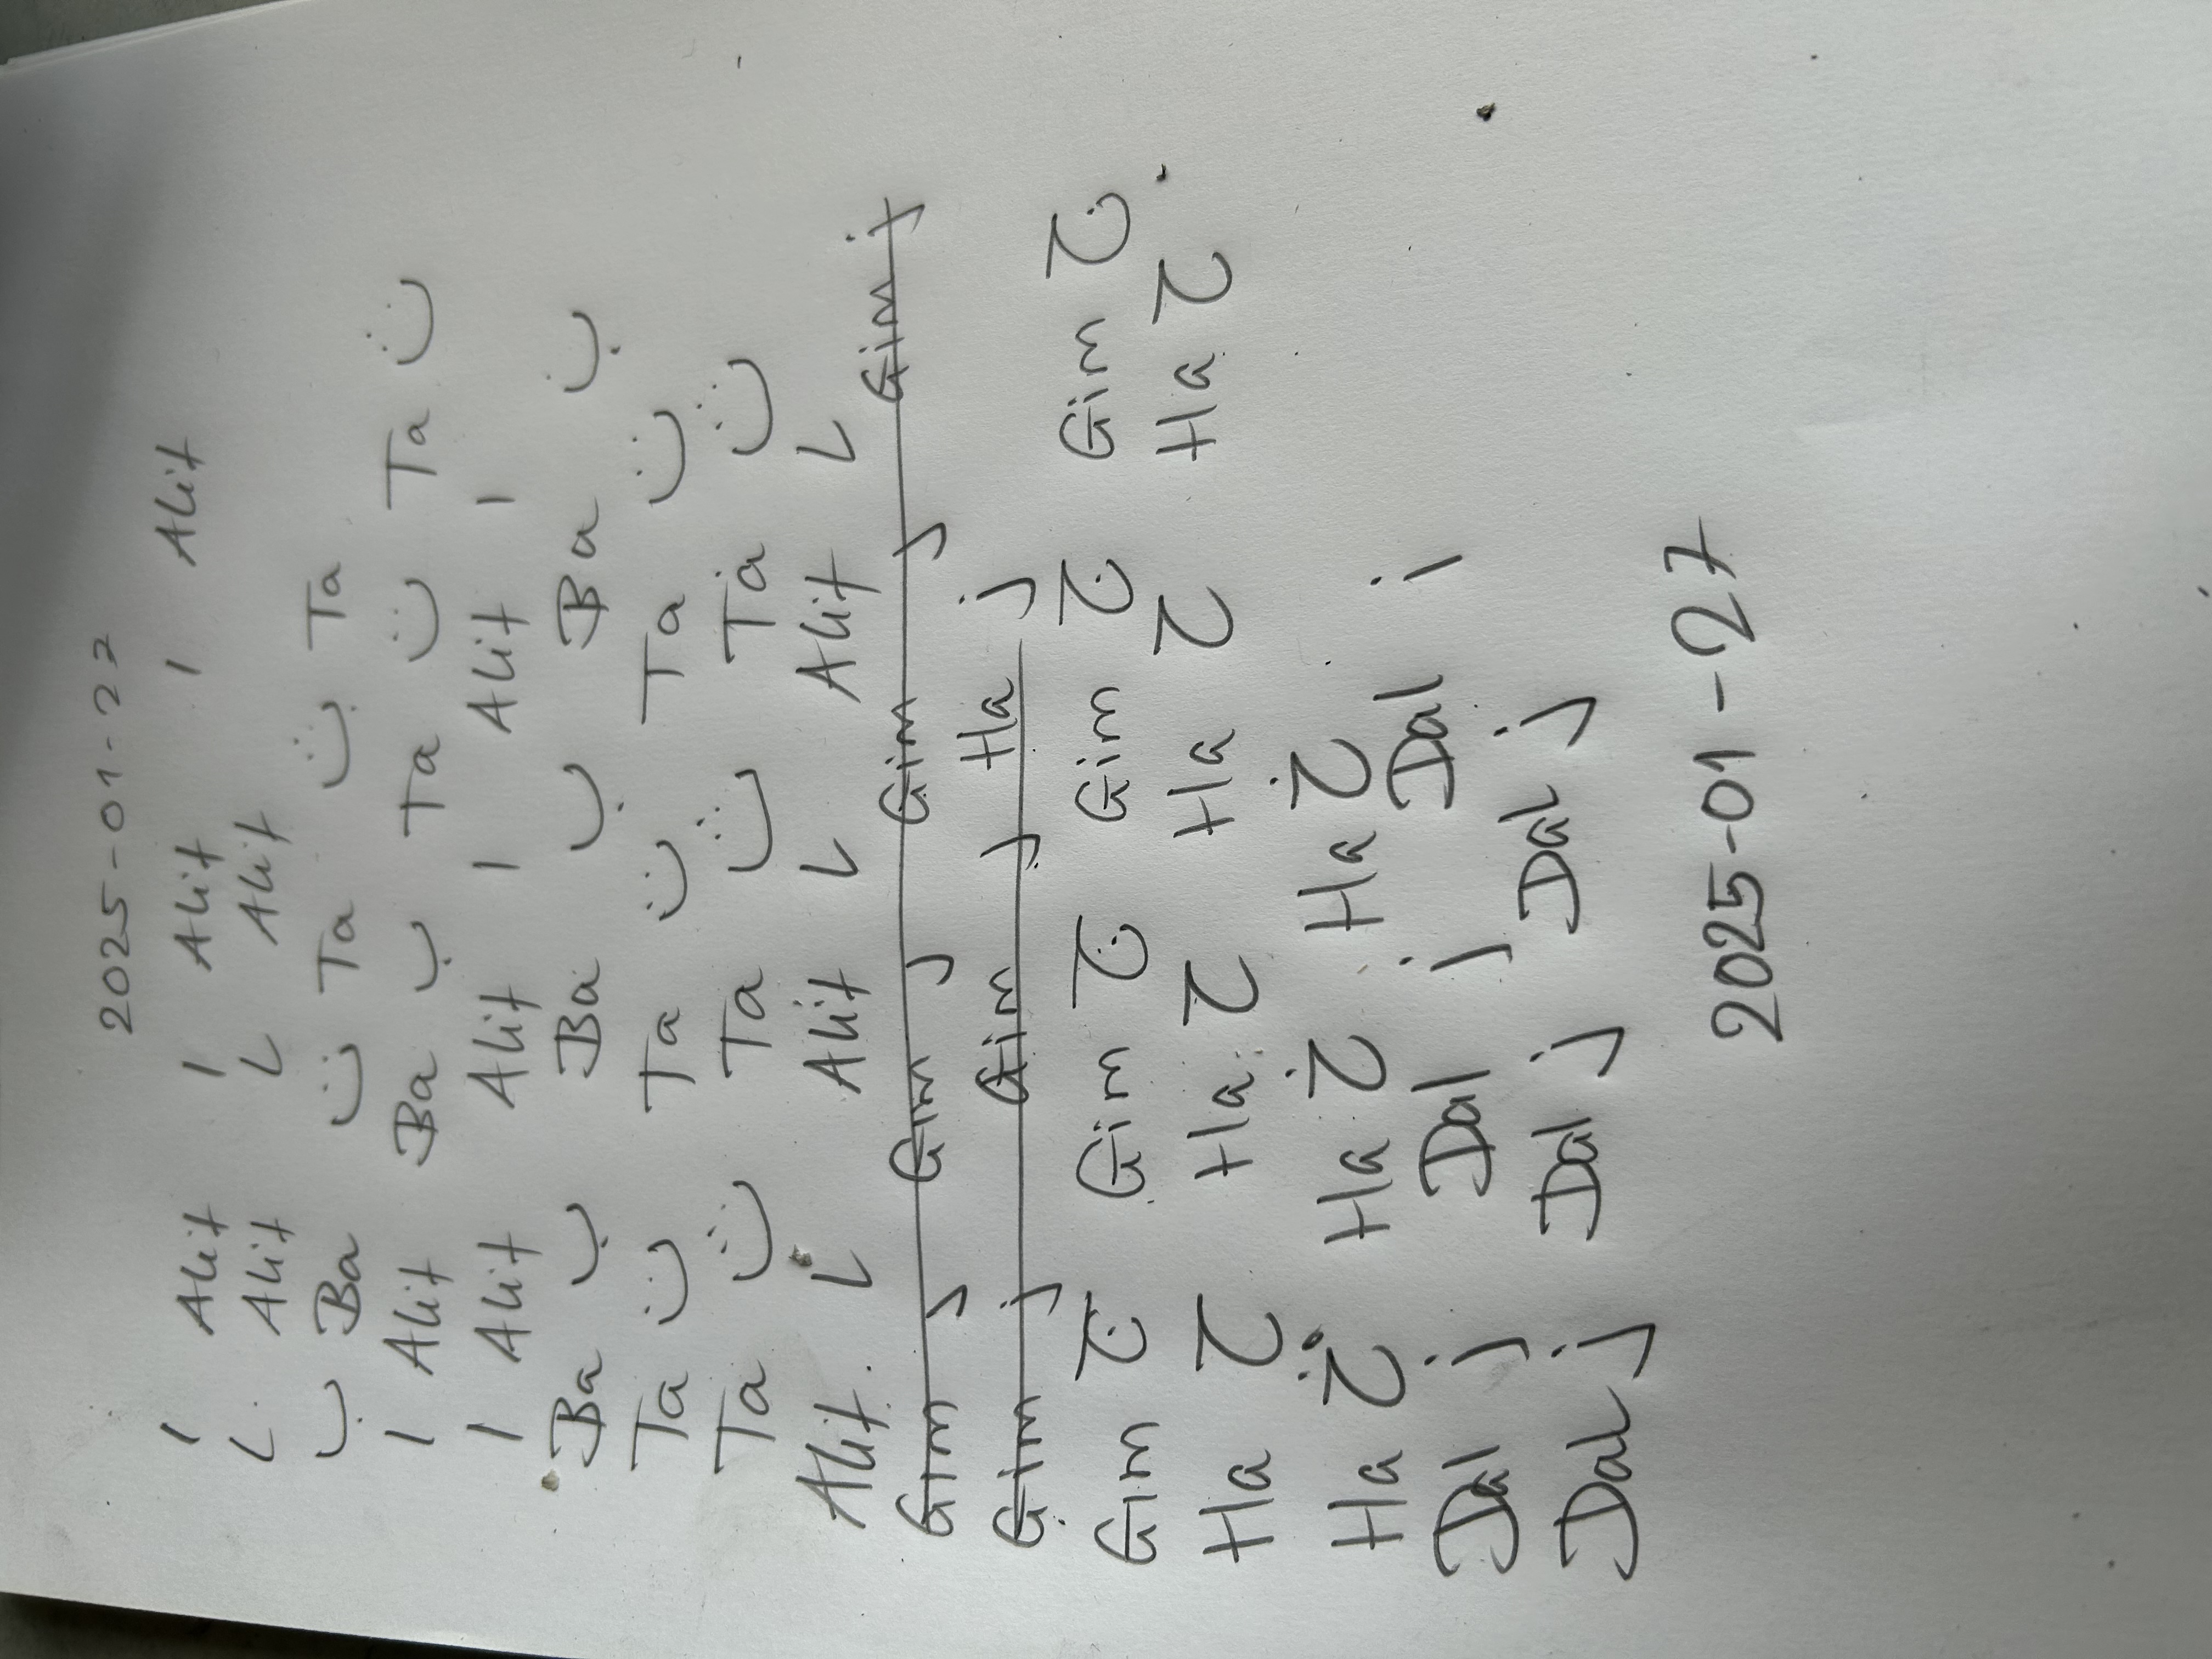 2025-01-27
ا Alif ا Alif ا Alif
ـا Alif ـا Alif
ب Ba ت Ta ت Ta
ا Alif Ba ب Ta ت Ta ت
ا Alif Alif ا Alif ا
Ba ب Ba ب Ba ب
Ta ت Ta ت Ta ت
Ta ت Ta ث Ta ث
Alif ـا Alif ـا Alif ـا
Gim د Gim د Gim د Gim ذ
Gim د Gim د Ha ذ
Gim ج Gim ج Gim ج Gim ج
Ha ح Ha ح Ha ح Ha ح
Ha خ Ha خ Ha خ
Dal ذ Dal ذ Dal
Dal ذ Dal ذ Dal ذ
2025-01-27